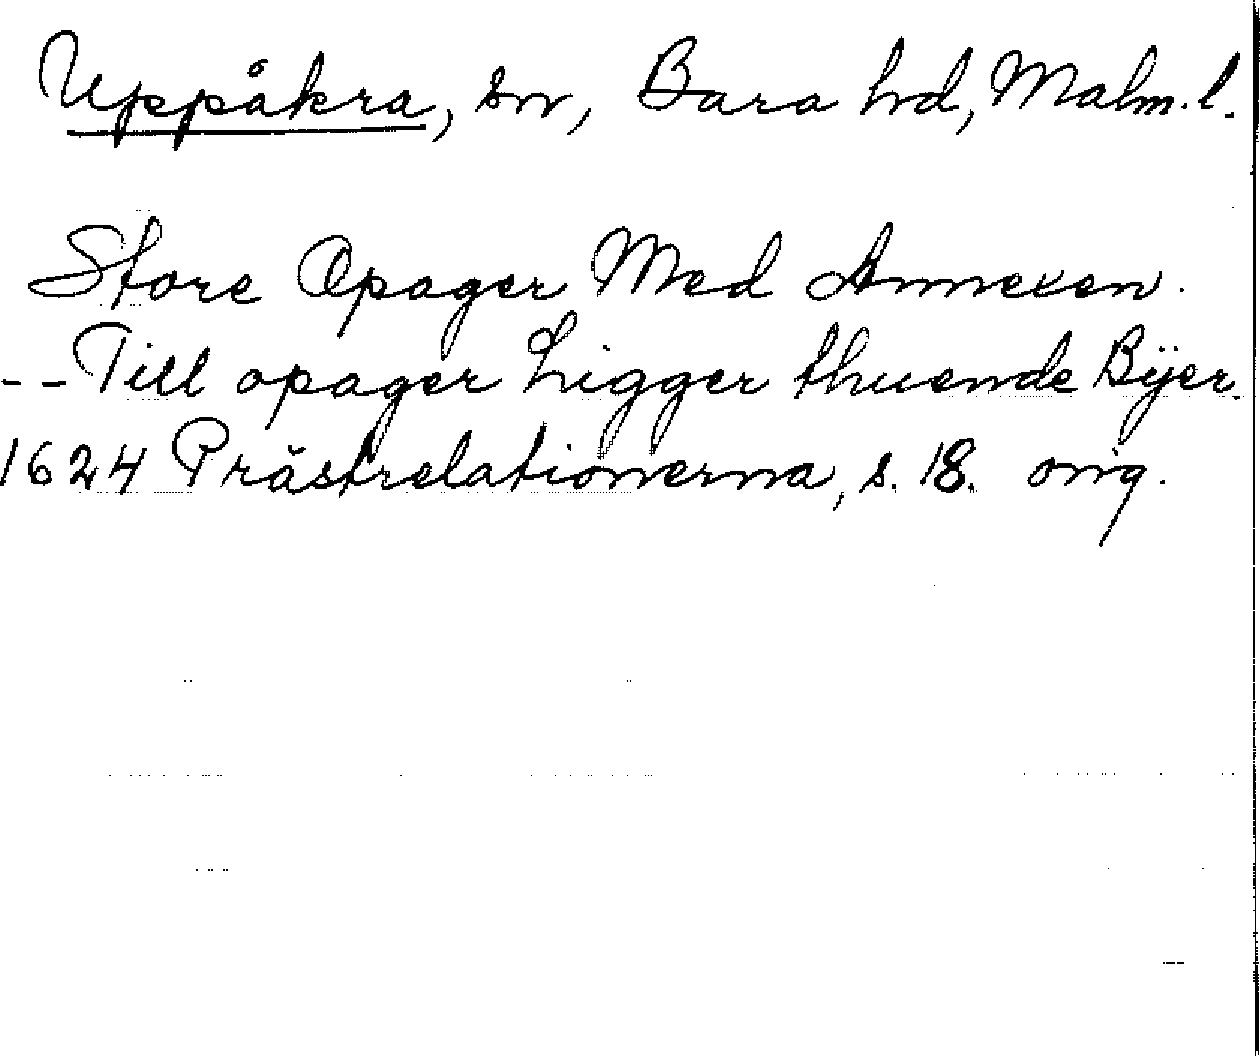 Uppåkra, sn, Bara hd, Malm. l.
Store Opager Med Annexen.
-- Till opager Ligger thuende Bÿer.
1624 Prästrelationerna, s. 18. orig.